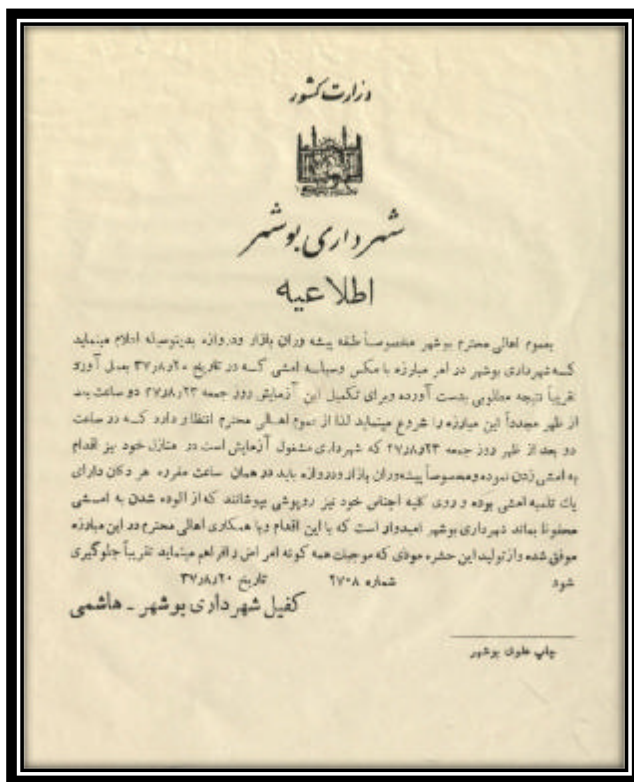 وزارت کشور
شهرداری بوشهر
اطلاعیه
بعموم اهالی محترم بوشهر مخصوصاً طبقه پیشه وران بازار ودروازه بدینوسیله اعلام مینماید
که شهرداری بوشهر در امر مبارزه با مگس وسیله امشی که در تاریخ ۳۷٫۸٫۲۰ بعمل آورد
تقریباً نتیجه مطلوبی بدست آورده وبرای تکمیل این آزمایش روز جمعه ۳۷٫۸٫۲۳ دو ساعت بعد
از ظهر مجدداً این مبارزه را شروع مینماید لذا از عموم اهالی محترم انتظار دارد که در ساعت
دو بعد از ظهر روز جمعه ۳۷٫۸٫۲۳ که شهرداری مشغول آزمایش است در منازل خود نیز اقدام
به امشی زدن نموده ومخصوصاً پیشه‌وران بازار ودروازه باید در همان ساعت مقرره هر دکان دارای
یك تلمبه امشی بوده و روی کلیه اجناس خود نیز روپوشی بپوشانند که از الوده شدن به امشی
محفوظ بماند شهرداری بوشهر امیدوار است که با این اقدام وبا همکاری اهالی محترم در این مبارزه
موفق شده واز تولید این حشره موذی که موجبات همه گونه امراض را فراهم مینماید تقریباً جلوگیری
شود شماره ۲۷۰۸ تاریخ ۳۷٫۸٫۲۰
کفیل شهرداری بوشهر ـ هاشمی
چاپ علوی بوشهر